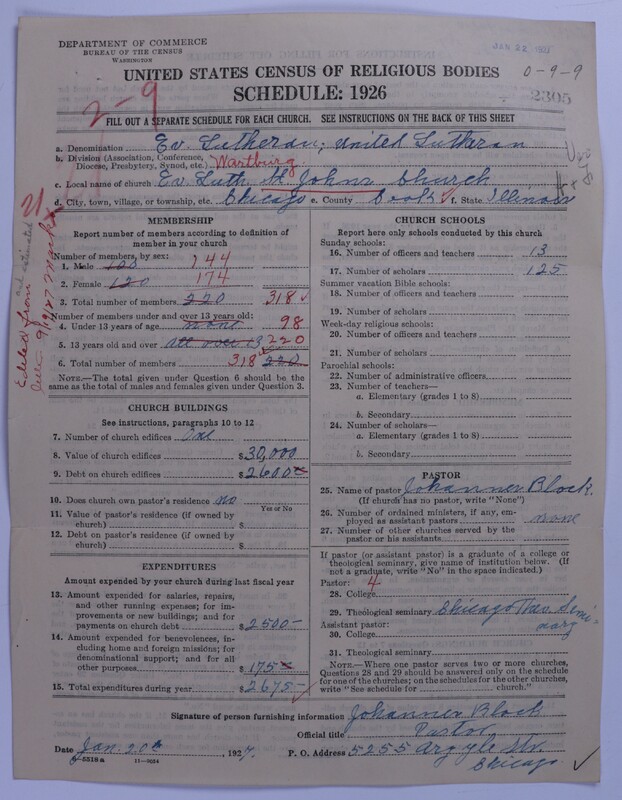 DEPARTMENT OF COMMERCE
BUREAU OF THE CENSUS
WASHINGTON
JAN 22 1927
UNITED STATES CENSUS OF RELIGIOUS BODIES
0-9-9
SCHEDULE: 1926
2305
2-9
FILL OUT A SEPARATE SCHEDULE FOR EACH CHURCH. SEE INSTRUCTIONS ON THE BACK OF THIS SHEET
a. Denomination Ev. Lutheran; United Lutheran
b. Division (Association, Conference, Diocese, Presbytery, Synod, etc.) Wartburg
c. Local name of church Ev. Luth. St Johns Church
d. City, town, village, or township, etc. Chicago e. County Cook f. State Illinois
MEMBERSHIP
Report number of members according to definition of member in your church
Number of members, by sex:
1. Male 100 144
2. Female 120 174
3. Total number of members 220 318
Number of members under and over 13 years old:
4. Under 13 years of age none 98
5. 13 years old and over all over 13 220
6. Total number of members 318 220
NOTE.—The total given under Question 6 should be the same as the total of males and females given under Question 3.
CHURCH BUILDINGS
See instructions, paragraphs 10 to 12
7. Number of church edifices One
8. Value of church edifices $30,000
9. Debt on church edifices $2600
10. Does church own pastor's residence no
Yes or No
11. Value of pastor's residence (if owned by church) $
12. Debt on pastor's residence (if owned by church) $
EXPENDITURES
Amount expended by your church during last fiscal year
13. Amount expended for salaries, repairs, and other running expenses; for improvements or new buildings; and for payments on church debt $2500-
14. Amount expended for benevolences, including home and foreign missions; for denominational support; and for all other purposes $175
15. Total expenditures during year $2675-
CHURCH SCHOOLS
Report here only schools conducted by this church
Sunday schools:
16. Number of officers and teachers 13
17. Number of scholars 125
Summer vacation Bible schools:
18. Number of officers and teachers
19. Number of scholars
Week-day religious schools:
20. Number of officers and teachers
21. Number of scholars
Parochial schools:
22. Number of administrative officers
23. Number of teachers—
a. Elementary (grades 1 to 8)
b. Secondary
24. Number of scholars—
a. Elementary (grades 1 to 8)
b. Secondary
PASTOR
25. Name of pastor Johannes Block.
(If church has no pastor, write "None")
26. Number of ordained ministers, if any, employed as assistant pastors none
27. Number of other churches served by the pastor or his assistants
If pastor (or assistant pastor) is a graduate of a college or theological seminary, give name of institution below. (If not a graduate, write "No" in the space indicated.)
Pastor: 4
28. College
29. Theological seminary Chicago Theo. Seminary
Assistant pastor:
30. College
31. Theological seminary
NOTE.—Where one pastor serves two or more churches, Questions 28 and 29 should be answered only on the schedule for one of the churches; on the schedules for the other churches, write "See schedule for church."
Signature of person furnishing information Johannes Block
Official title Pastor
Date Jan. 20th, 1927.
P. O. Address 5255 Argyle Str.
Chicago
8-5318 a 11-9024